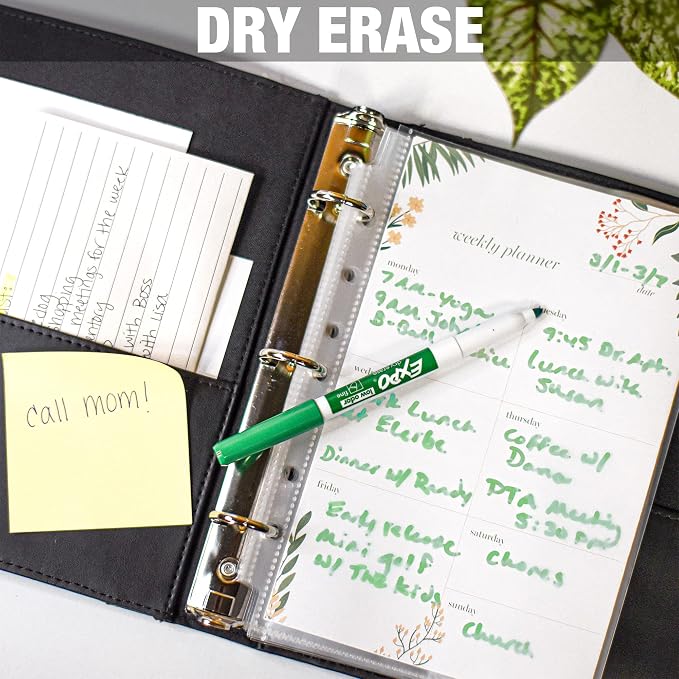 DRY ERASE
shopping
meetings for the week
with Boss
with Lisa
call mom!
weekly planner
3/1-3/7
date
monday
7AM-Yoga
9AM
B-Ball
9:45 Dr. Apt.
Lunch with
Susan
Lunch
Dinner w/ Randy
thursday
Coffee w/
PTA Meeting
5:30 PM
friday
Early release
Mini golf
w/ The Kids
saturday
Chores
sunday
Church
EXPO
low odor
fine